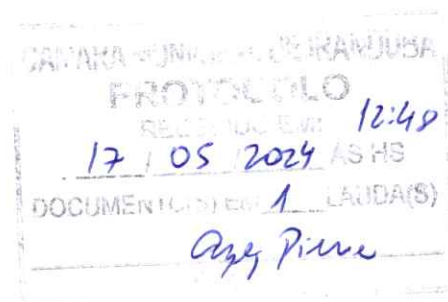 CÂMARA MUNICIPAL DE IRANDUBA
PROTOCOLO
RECEBIDO EM:
17 / 05 2024 ÀS HS 12:48
DOCUMENTO(S) EM 1 LAUDA(S)